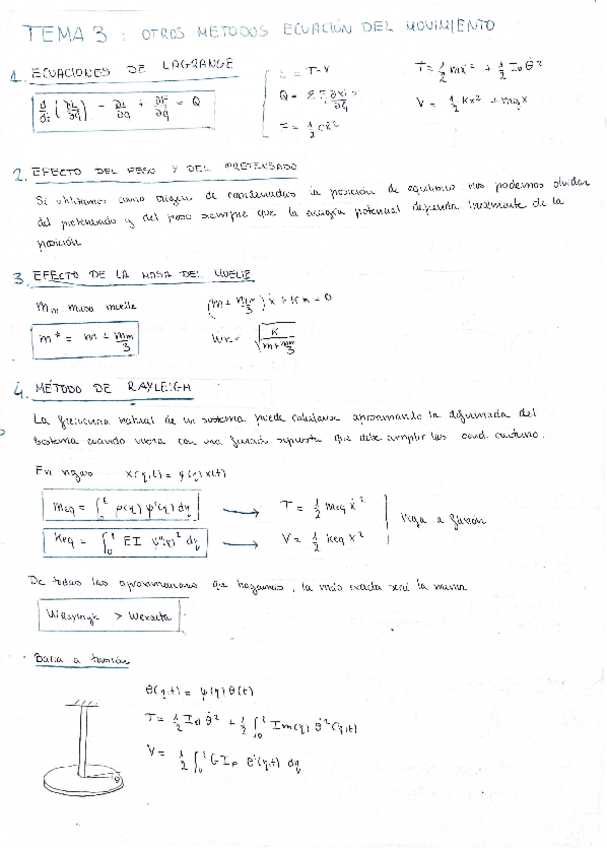 TEMA 3 : OTROS METODOS ECUACIÓN DEL MOVIMIENTO
1. ECUACIONES DE LAGRANGE
L = T - V
T = 1/2 mẋ² + 1/2 I₀ θ̇²
V = 1/2 Kx² + mgx
2. EFECTO DEL PESO Y DEL PRETENSADO
Si utilizamos como origen de coordenadas la posición de equilibrio nos podemos olvidar
del pretensado y del peso siempre que la energía potencial dependa linealmente de la
posición
3. EFECTO DE LA MASA DEL MUELLE
Mm masa muelle
m* = m + mm/3
4. MÉTODO DE RAYLEIGH
La frecuencia natural de un sistema puede calcularse aproximando la deformada del
sistema cuando vibra con una función supuesta que debe cumplir las cond. contorno.
En vigas x(η,t) = ψ(η) x(t)
T = 1/2 meq ẋ²
V = 1/2 keq x²
Viga a flexión
De todas las aproximaciones que hagamos, la más exacta será la menor
WRayleigh > Wexacta
· Barra a torsión
θ(η,t) = ψ(η) θ(t)
θ